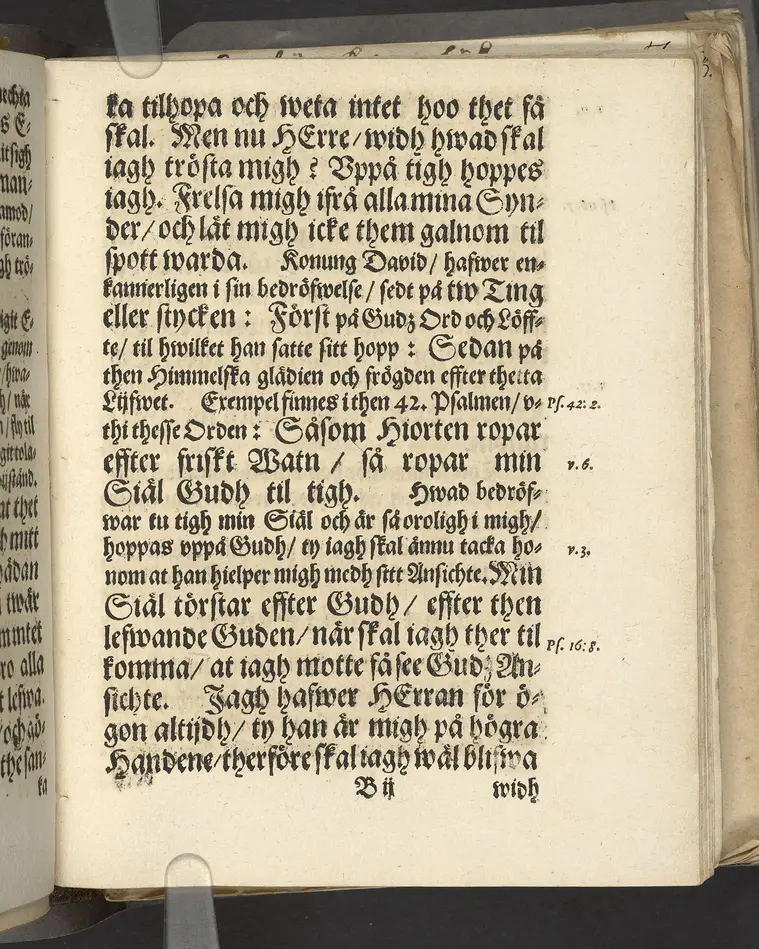 nechta
s E-
it sigh
man-
amod/
föran-
gh trö-
igit E-
genom
/ hwa-
h/ när
n/ fly til
git tola-
ijständ.
at thet
h mitt
ådan
i twär
m intet
ro alla
t lefwa.
/ och gö-
the san-
ka
ka tilhopa och weta intet hoo thet få
skal. Men nu HErre/ widh hwad skal
iagh trösta migh? Vppå tigh hoppes
iagh. Frelsa migh ifrå alla mina Syn-
der/ och låt migh icke them galnom til
spott warda. Konung David/ hafwer en-
kannerligen i sin bedröfwelse/ sedt på tw Ting
eller stycken: Först på Gudz Ord och Löff-
te/ til hwilket han satte sitt hopp: Sedan på
then Himmelska glädien och frögden effter thetta
Lijfwet. Exempel finnes i then 42. Psalmen/ v- Ps. 42: 2.
thi thesse Orden: Såsom Hiorten ropar
effter friskt Watn/ så ropar min v. 6.
Siäl Gudh til tigh. Hwad bedröf-
war tu tigh min Siäl och är så oroligh i migh/
hoppas vppå Gudh/ ty iagh skal ännu tacka ho- v. 3.
nom at han hielper migh medh sitt Ansichte. Min
Siäl törstar effter Gudh/ effter then
lefwande Guden/ när skal iagh ther til Ps. 16: 8.
komma/ at iagh motte få see Gudz An-
sichte. Jagh hafwer HErran för ö-
gon altijdh/ ty han är migh på högra
Handene/ therföre skal iagh wäl blifwa
B ij widh